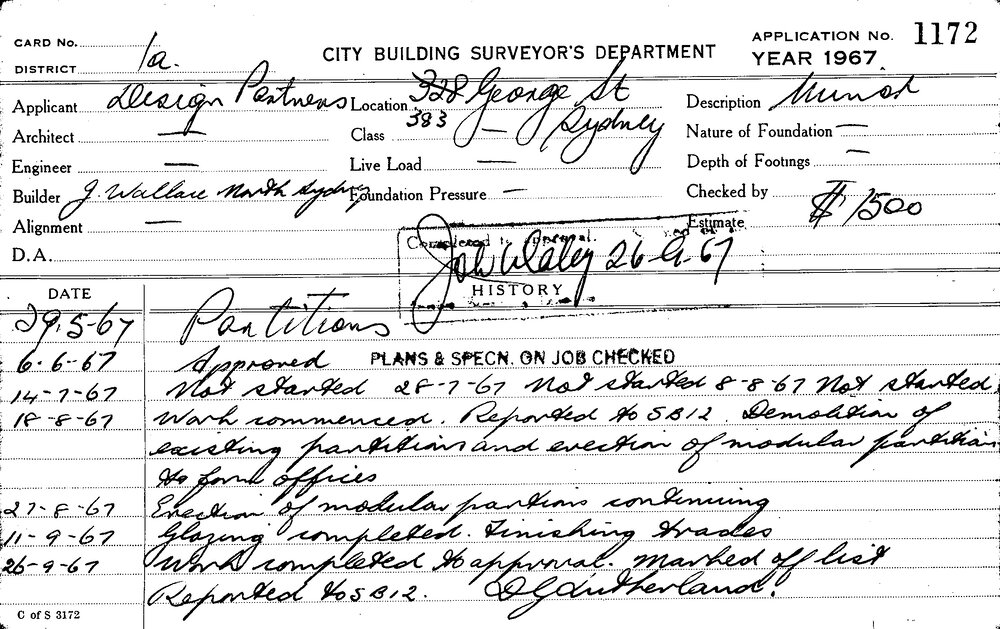 CARD No.
DISTRICT 1a.
CITY BUILDING SURVEYOR'S DEPARTMENT
APPLICATION No. 1172
YEAR 1967.
Applicant Design Partners Location 328 George St Description Minor
Architect — Class 383 — Sydney Nature of Foundation —
Engineer — Live Load — Depth of Footings —
Builder J. Wallace North Sydney Foundation Pressure — Checked by
Alignment — Estimate $1500
D.A.
Completed to approval.
26-9-67
DATE HISTORY
29.5-67 Partitions
6-6-67 Approved PLANS & SPECN. ON JOB CHECKED
14-7-67 Not started 28-7-67 Not started 8-8-67 Not started
18-8-67 Work commenced. Reported to SB12. Demolition of
existing partitions and erection of modular partitions
to form offices
27-8-67 Erection of modular partions continuing
11-9-67 Glazing completed. Finishing trades
26-9-67 Work completed to approval. Marked off list
Reported to SB12. DGSutherland.
C of S 3172